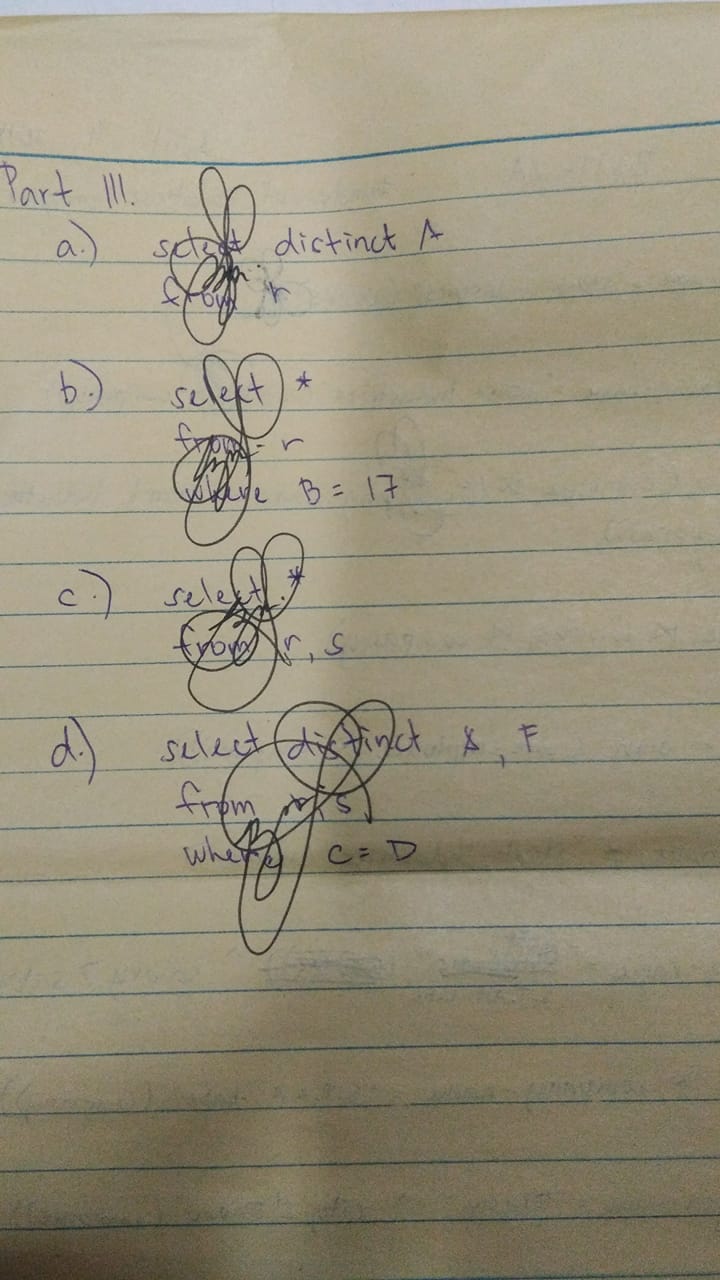 Part III.
a.) select distinct A
from r
b.) select *
from r
where B = 17
c.) select *
from r, s
d.) select distinct A, F
from r, s
where C = D